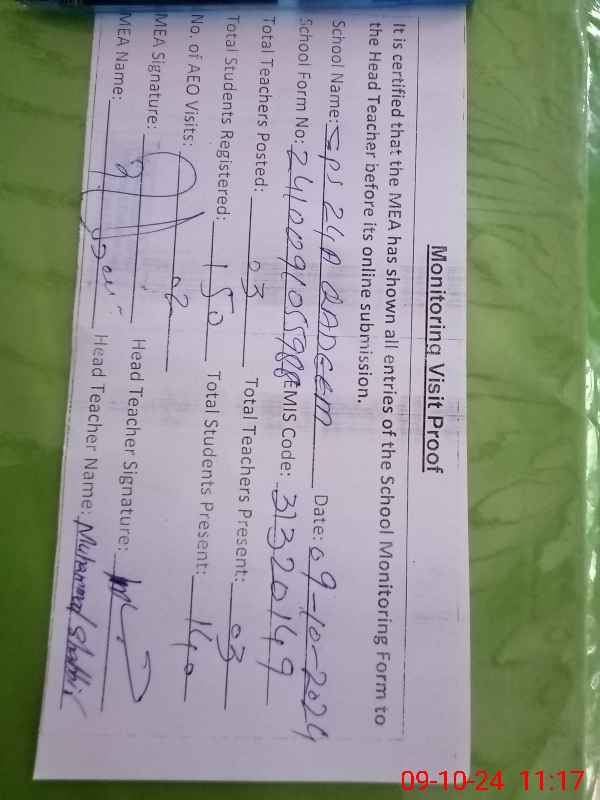 Monitoring Visit Proof
It is certified that the MEA has shown all entries of the School Monitoring Form to
the Head Teacher before its online submission.
School Name: GPS 24A QADEEM Date: 09-10-2024
School Form No: 241009105598 EMIS Code: 31320149
Total Teachers Posted: 03 Total Teachers Present: 03
Total Students Registered: 150 Total Students Present: 140
No. of AEO Visits: 02
MEA Signature: Head Teacher Signature:
MEA Name: Head Teacher Name: Muhammad Shabbir
09-10-24 11:17